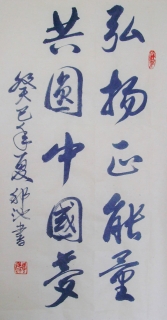 弘扬正能量
共圆中國夢
癸巳年夏
書